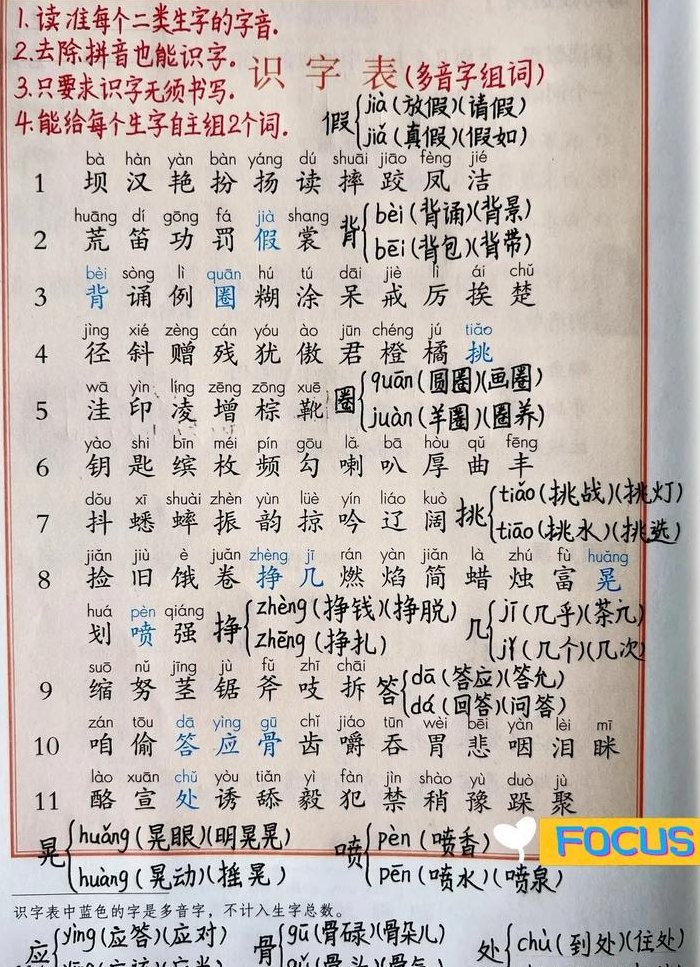 1.读准每个二类生字的字音.
2.去除拼音也能识字.
3.只要求识字无须书写.
4.能给每个生字自主组2个词.
识字表(多音字组词)
假 jià (放假)(请假)
jiǎ (真假)(假如)
bà hàn yàn bàn yáng dú shuāi jiāo fèng jié
1 坝 汉 艳 扮 扬 读 摔 跤 凤 洁
huāng dí gōng fá jià shang
2 荒 笛 功 罚 假 裳
背 bèi (背诵)(背景)
bēi (背包)(背带)
bèi sòng lì quān hú tú dāi jiè lì ái chǔ
3 背 诵 例 圈 糊 涂 呆 戒 厉 挨 楚
jìng xié zèng cán yóu ào jūn chéng jú tiǎo
4 径 斜 赠 残 犹 傲 君 橙 橘 挑
wā yìn líng zēng zōng xuē
5 洼 印 凌 增 棕 靴
圈 quān (圆圈)(画圈)
juàn (羊圈)(圈养)
yào shi bīn méi pín gōu lǎ bā hòu qǔ fēng
6 钥 匙 缤 枚 频 勾 喇 叭 厚 曲 丰
dǒu xī shuài zhèn yùn lüè yín liáo kuò
7 抖 蟋 蟀 振 韵 掠 吟 辽 阔
挑 tiǎo (挑战)(挑灯)
tiāo (挑水)(挑选)
jiǎn jiù è juǎn zhèng jī rán yàn jiǎn là zhú fù huǎng
8 捡 旧 饿 卷 挣 几 燃 焰 简 蜡 烛 富 晃
huá pèn qiáng
划 喷 强
挣 zhèng (挣钱)(挣脱)
zhēng (挣扎)
几 jī (几乎)(茶几)
jǐ (几个)(几次)
suō nǔ jīng jù fǔ zhī chāi
9 缩 努 茎 锯 斧 吱 拆
答 dā (答应)(答允)
dá (回答)(问答)
zán tōu dā yìng gū chǐ jiáo tūn wèi bēi yàn lèi mī
10 咱 偷 答 应 骨 齿 嚼 吞 胃 悲 咽 泪 眯
lào xuān chǔ yòu tiǎn yì fàn jìn shào yù duò jù
11 酪 宣 处 诱 舔 毅 犯 禁 稍 豫 跺 聚
FOCUS
晃 huǎng (晃眼)(明晃晃)
huàng (晃动)(摇晃)
喷 pèn (喷香)
pēn (喷水)(喷泉)
识字表中蓝色的字是多音字，不计入生字总数。
应 yìng (应答)(应对)
骨 gū (骨碌)(骨朵儿)
处 chù (到处)(住处)